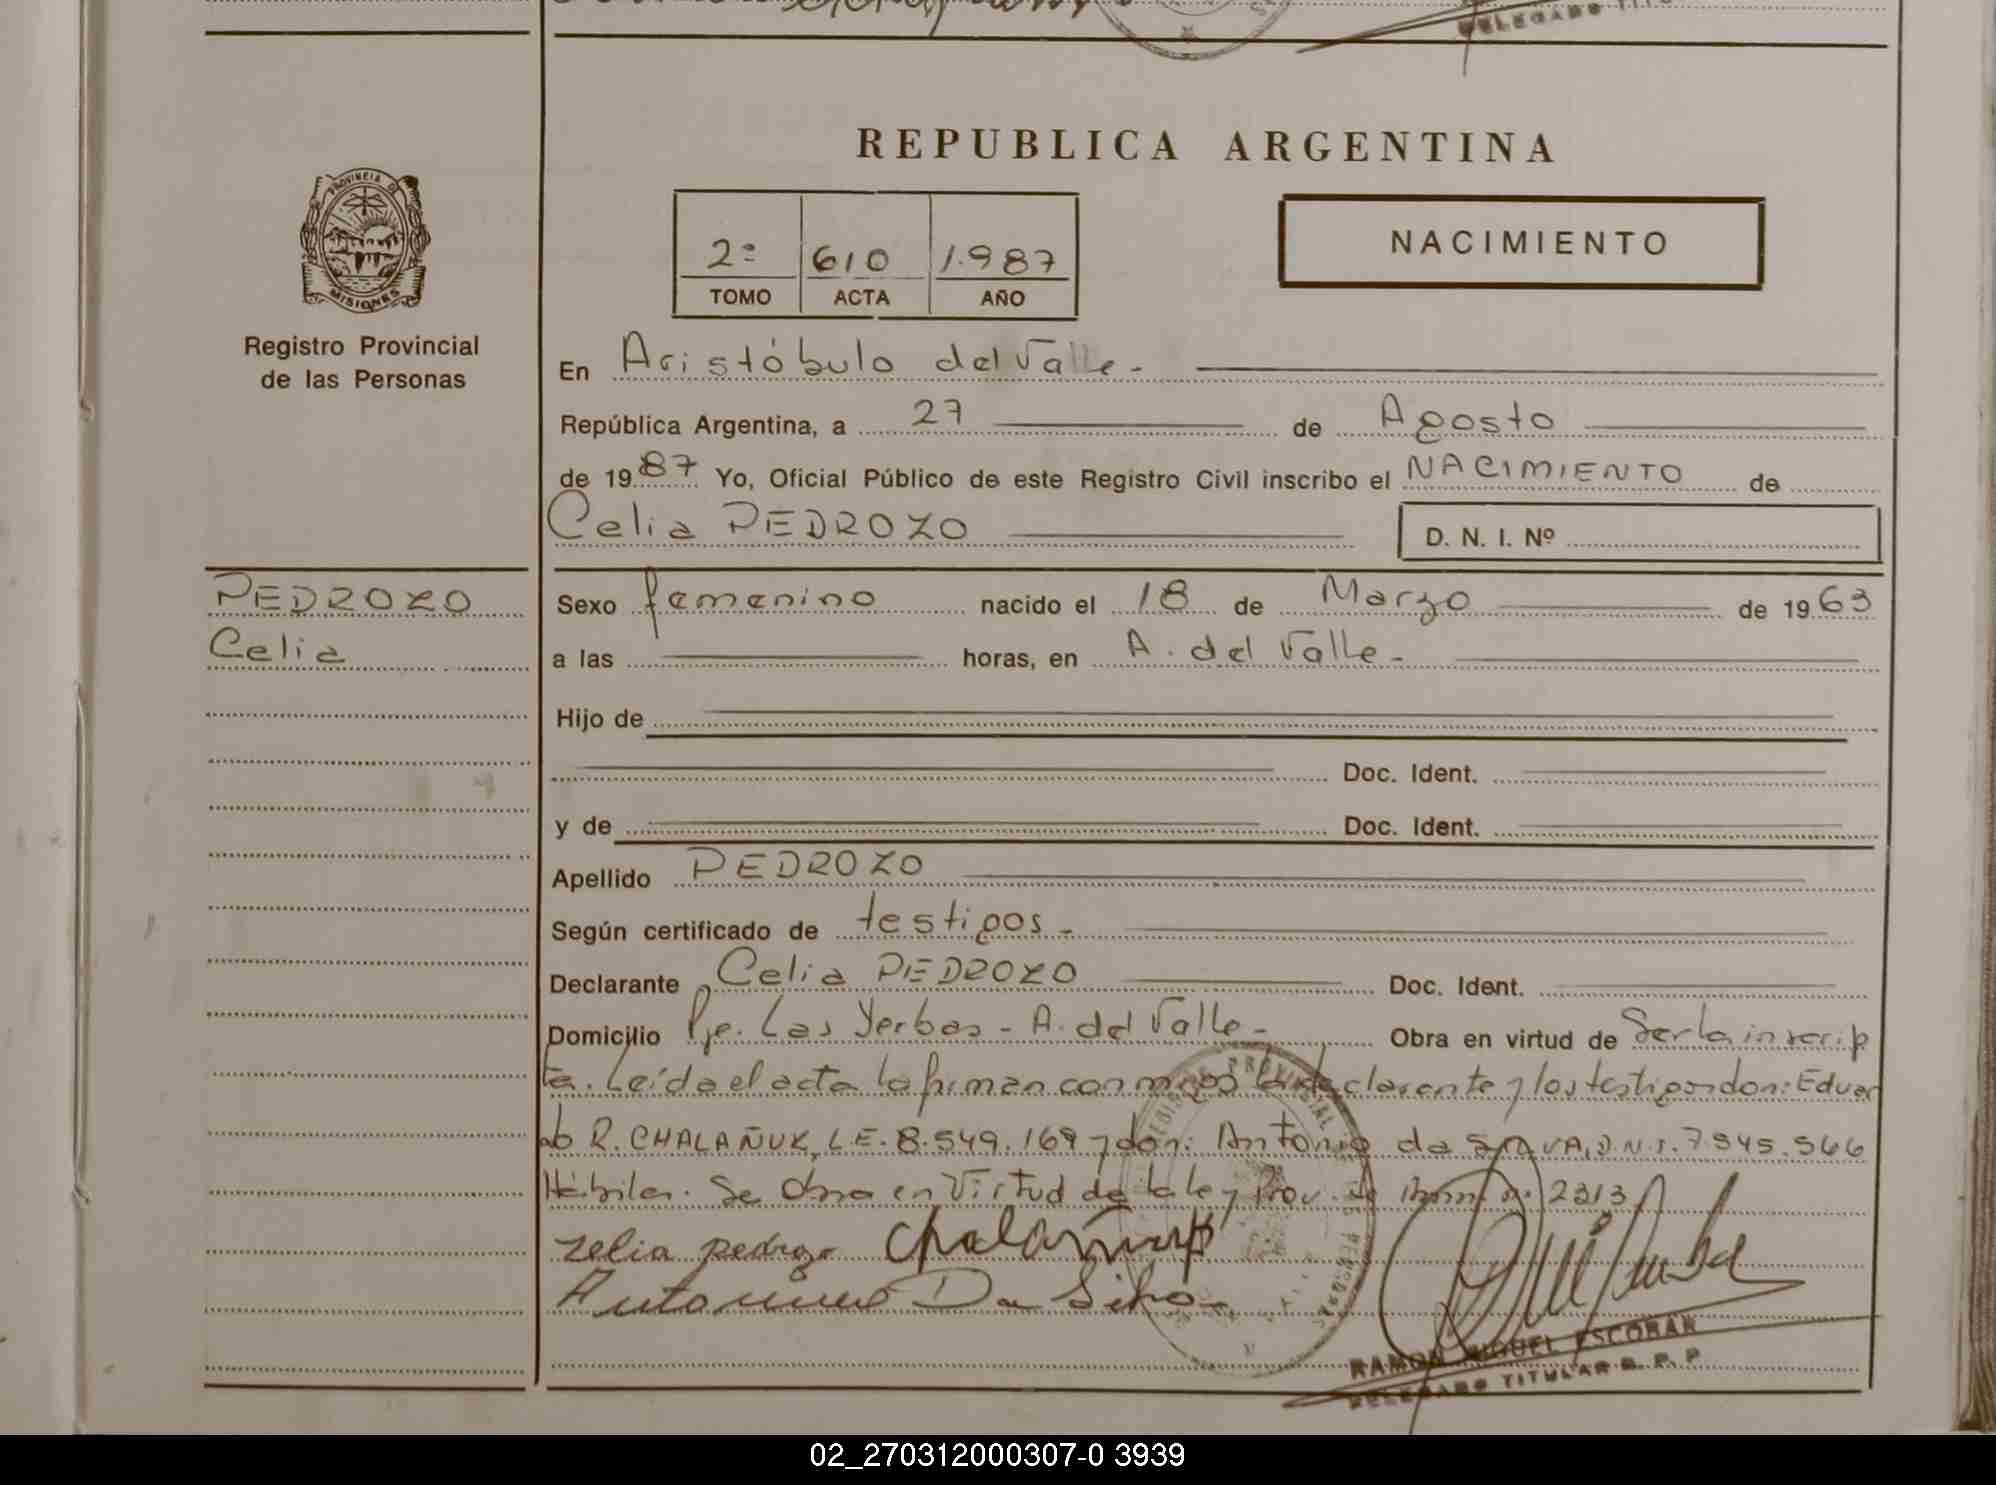 DELEGADO TIT
REPUBLICA ARGENTINA
PROVINCIA DE
MISIONES
Registro Provincial
de las Personas
2º 610 1.987
TOMO ACTA AÑO
NACIMIENTO
En Aristóbulo del Valle.-
República Argentina, a 27 de Agosto
de 1987 Yo, Oficial Público de este Registro Civil inscribo el NACIMIENTO de
Celia PEDROZO D. N. I. Nº
PEDROZO
Celia
Sexo femenino nacido el 18 de Marzo de 1963
a las horas, en A. del Valle.-
Hijo de
Doc. Ident.
y de Doc. Ident.
Apellido PEDROZO
Según certificado de testigos.-
Declarante Celia PEDROZO Doc. Ident.
Domicilio Pje. Las Yerbas - A. del Valle.- Obra en virtud de Ser la inscrip
ta. Leída el acta la firman conmigo la declarante y los testigos don: Eduar
do R. CHALAÑUK, L.E. 8.549.169 y don: Antonio da SILVA, D.N.I. 7.545.566
Hábiles. Se obra en Virtud de la ley Prov. de nº 2213
Zelia pedrozo Chalañuk
Antonino Da Silva
RAMON MIGUEL ESCOBAR
DELEGADO TITULAR R. P. P
REGISTRO PROVINCIAL DE LAS PERSONAS
02_270312000307-0 3939